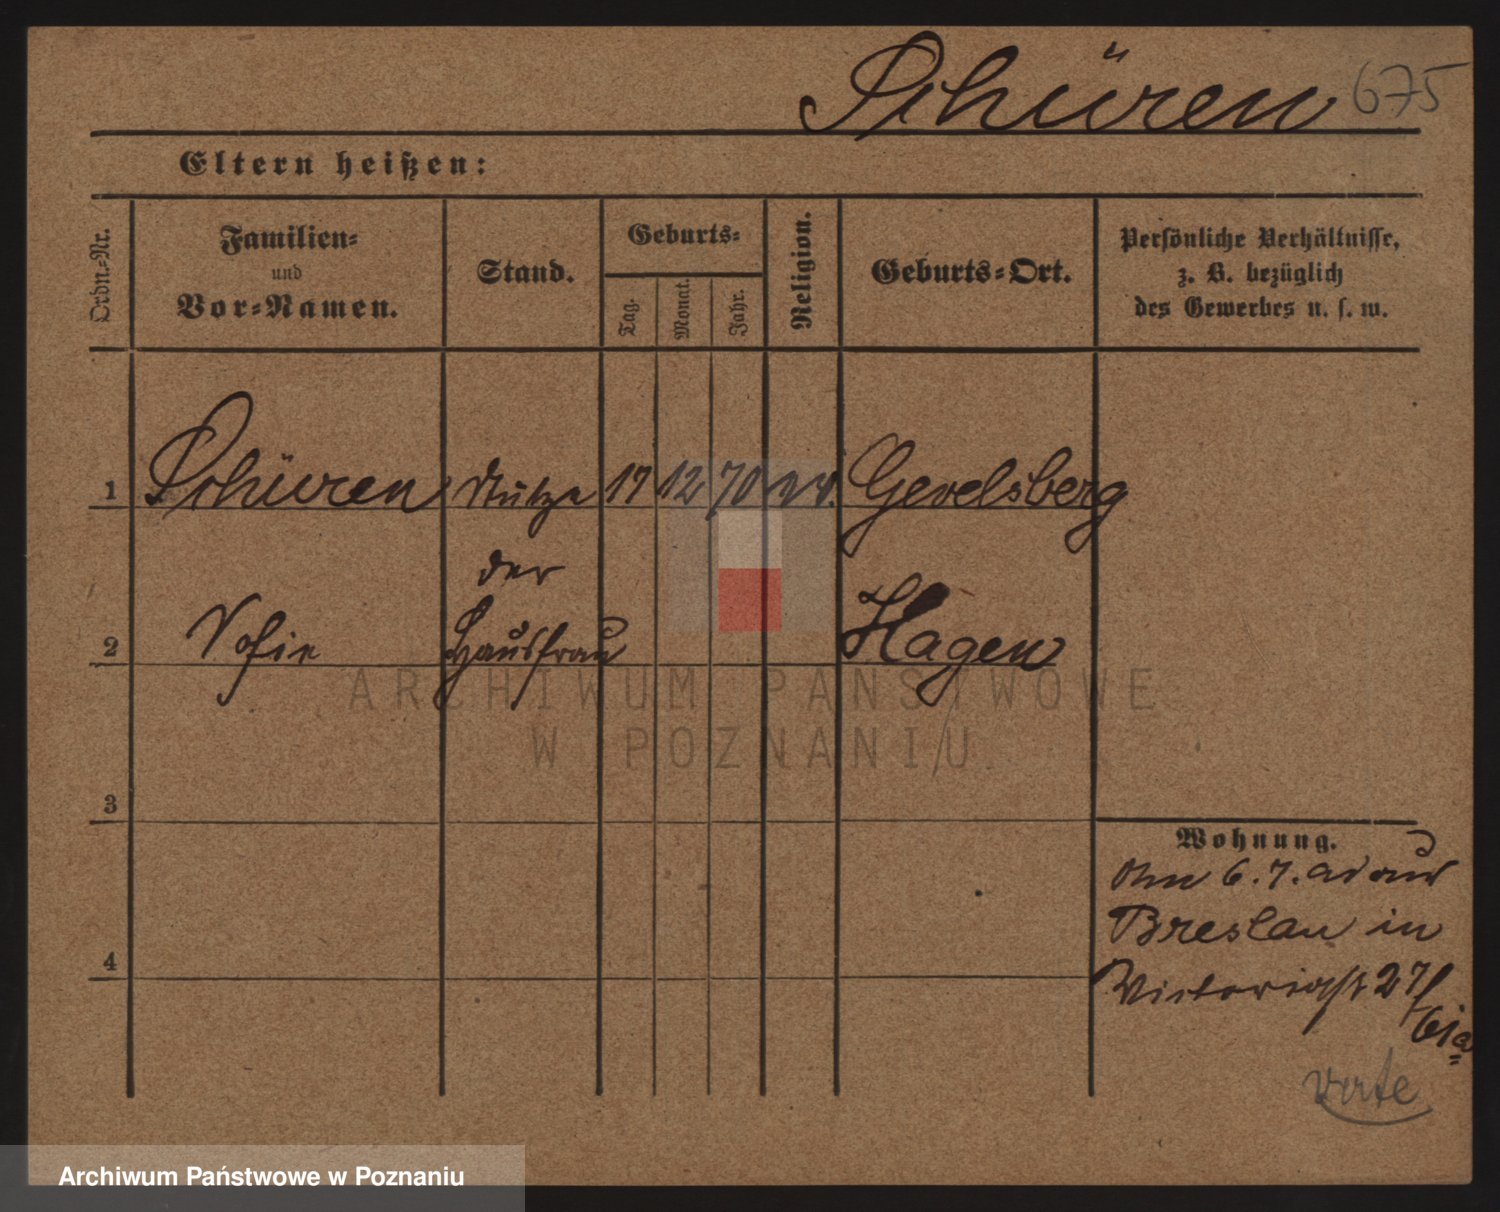 Schüren 675
Eltern heißen:
Ordn.-Nr.
Familien-
und
Vor-Namen.
Stand.
Geburts-
Tag.
Monat.
Jahr.
Religion.
Geburts-Ort.
Persönliche Verhältnisse,
z. B. bezüglich
des Gewerbes u. s. w.
1 Schüren Stütze 17 12 70 ev. Gevelsberg
der
2 Sofie Hausfrau Hagen
ARCHIWUM PAŃSTWOWE
W POZNANIU
3
Wohnung.
6.7. aus
Breslau in
4
Victoriastr 27/
verte
Archiwum Państwowe w Poznaniu